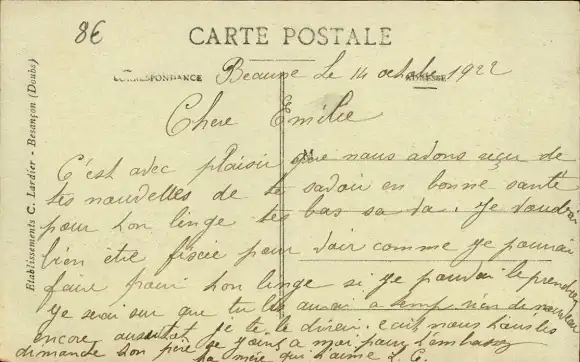 8€
CARTE POSTALE
CORRESPONDANCE
ADRESSE
Etablissements C. Lardier - Besançon (Doubs)
Beaune Le 14 octobre 1922
Chere Emilie
C'est avec plaisir que nous avons reçu de
tes nouvelles de te savoir en bonne santé
pour ton linge tes bas sa va. Je voudrai
bien être fixée pour voir comme je pourrai
faire pour ton linge si je pouvai le prendre
je serai sur que tu les aurai a temp rien de nouveau
encore aussitot je te le dirai.
dimanche ton père se joint a moi pour t'embrasser
ta mère qui t'aime